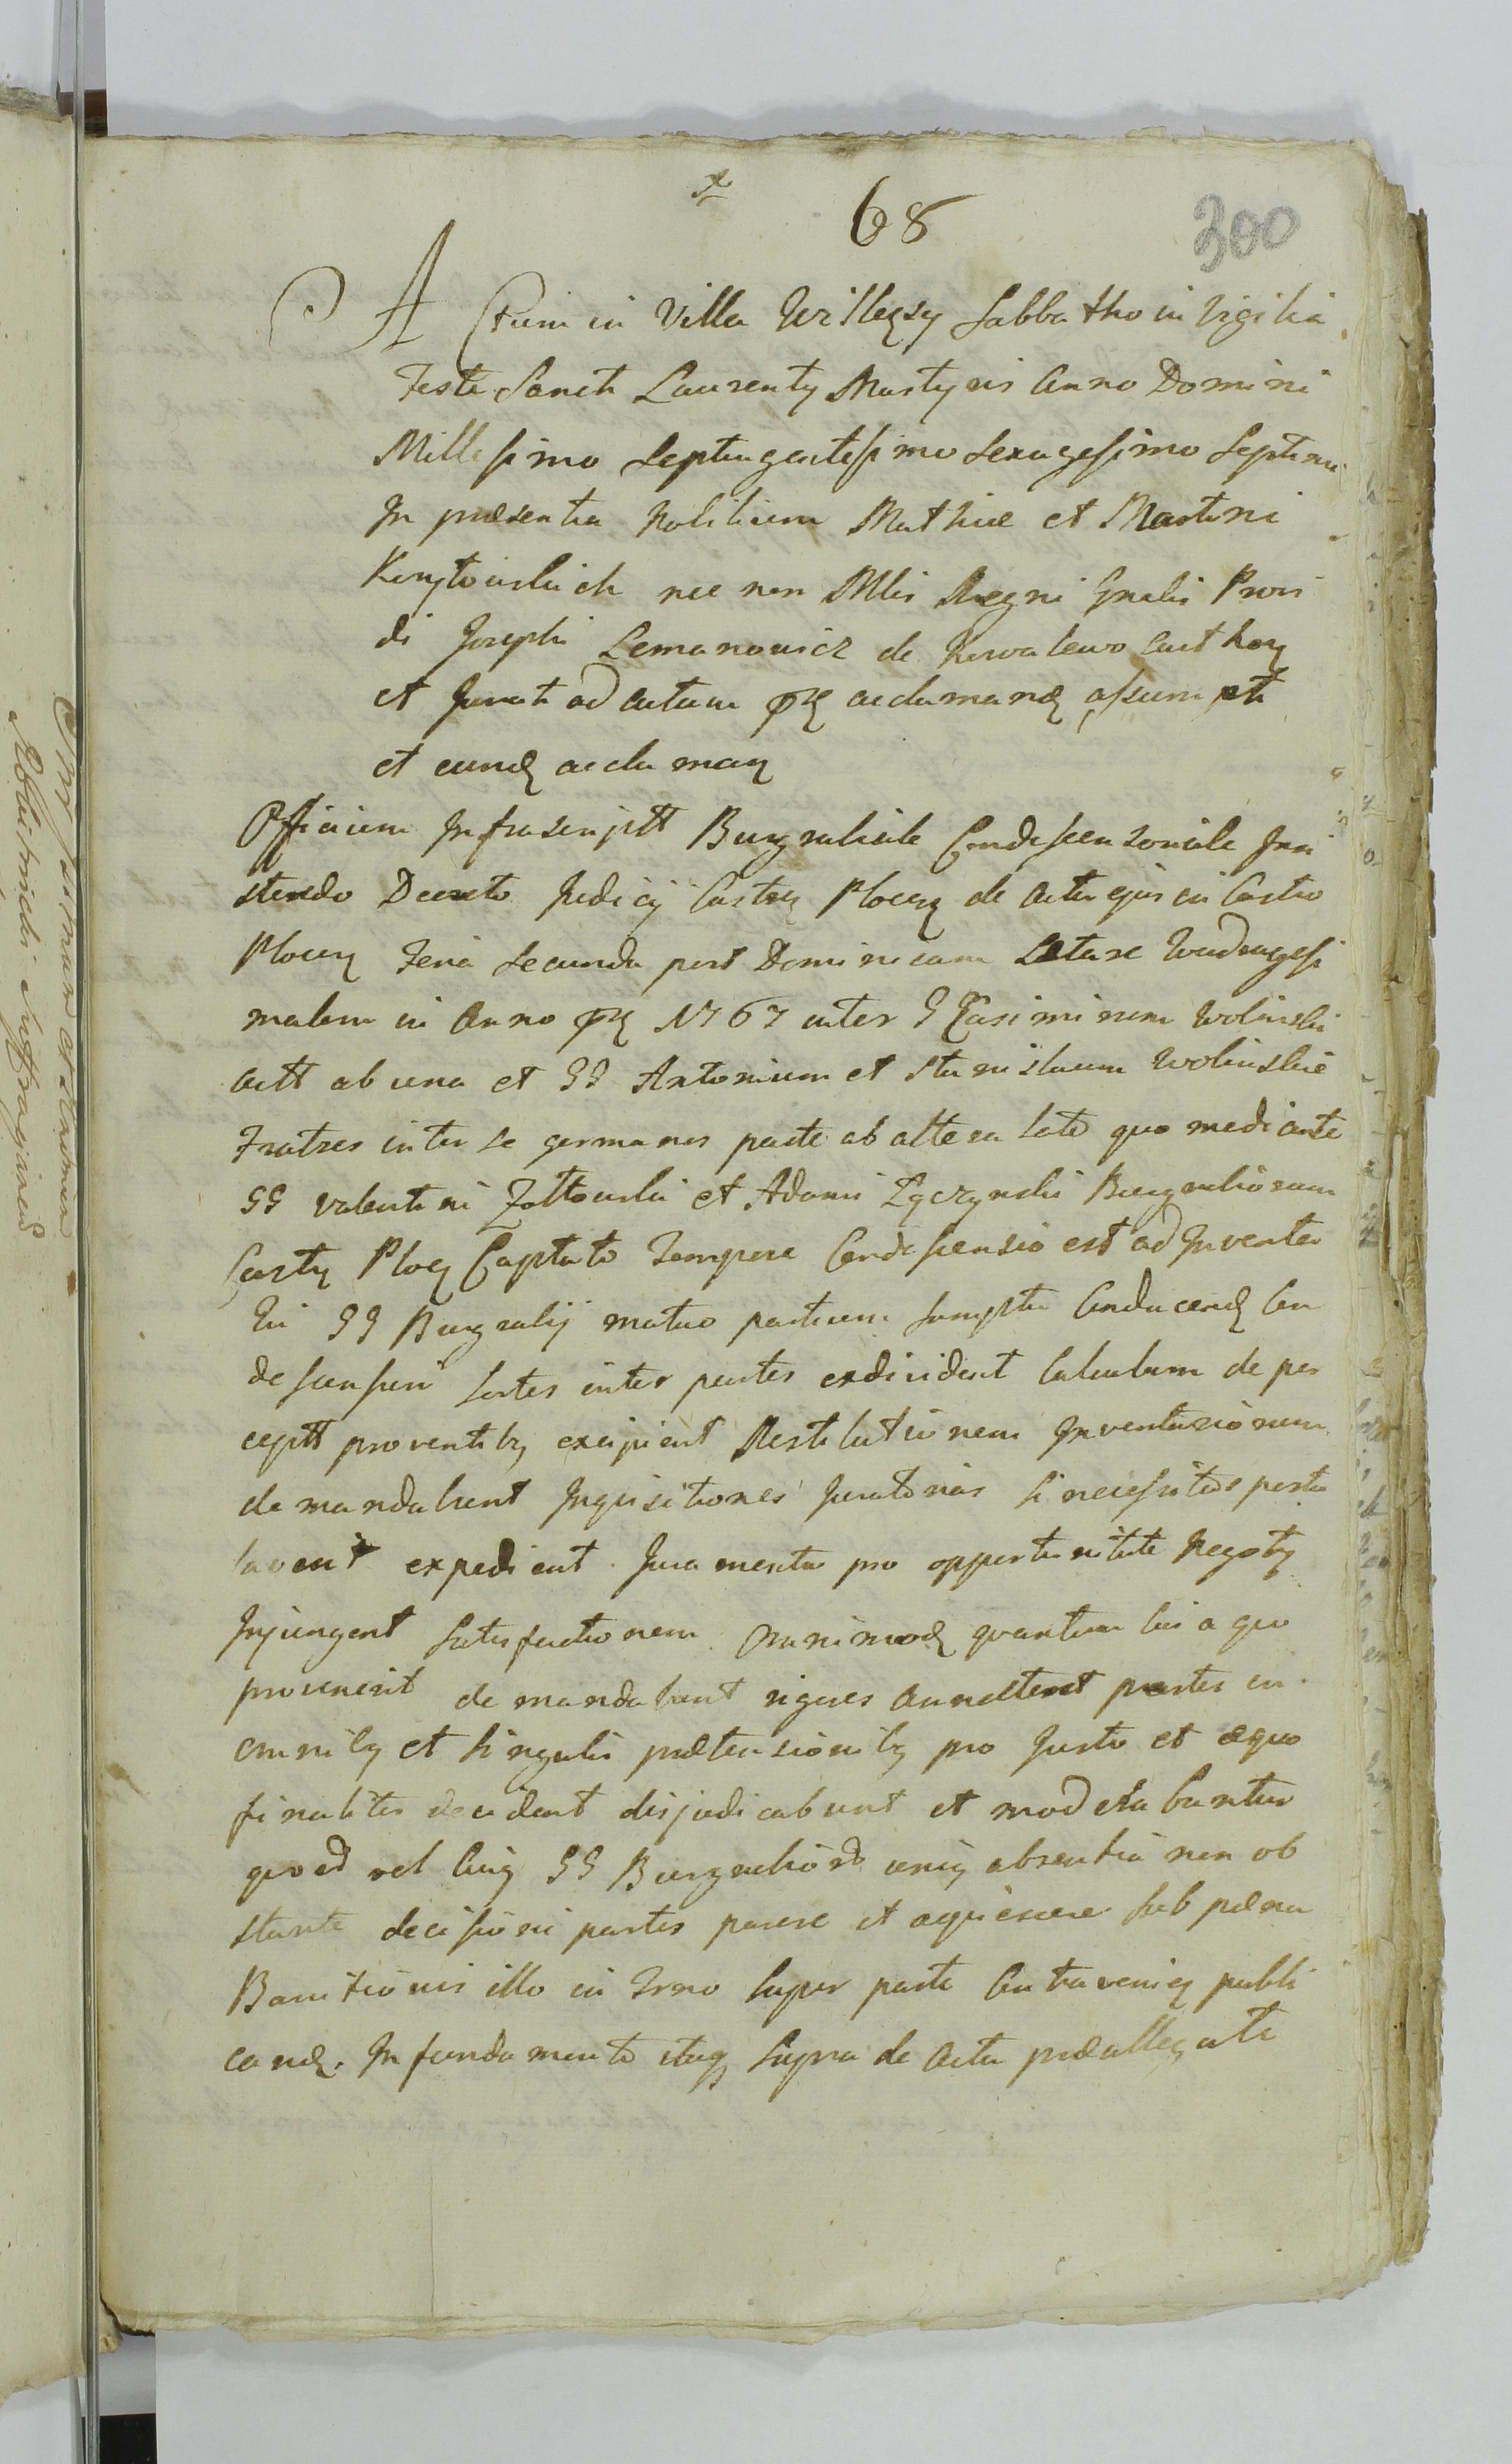 68
300
Actum in Villa Wilkęsy Sabbatho in Vigilia
Festi Sancti Laurentÿ Martyris Anno Domini
Millesimo Septingentesimo Sexagesimo Septimo
In præsentia Nobilium Mathiæ et Martini
nec non Mlis Regni Gnalis Provi
di Josephi Lemanowicz de Kowalewo auth
et Jurati ad actum acclamand assumpti
et eund acclaman
Officium Infrascriptt Burgrabiale Condescensoriale Insi
stendo Decreto Judicij Castr Plocen de Actu ejus in Castro
Plocen Feria Secunda post Dominicam Lætare Quadragesi
malem in Anno 1767 inter G Casimirum Wolinski
Actt ab una et GG Antonium et Stanislaum Wolinskie
Fratres inter se germanos parte ab altera lato quo mediante
GG Valentini Zołtowski et Adami Zyczynski Burgrabiorum
Castr Ploc Captato Tempore Condescensio est ad Inventa
Qui GG Burgrabij mutuo partium sumptu Conducend Con
descensuri Sortes inter partes exdivident Calculum de per
ceptt proventibg excipient Restitutionem Inventariorum
demandabunt Inquisitiones Juratorias si necessitas postu
laverit expedient. Juramenta pro opportunitate Negotÿ
Injungent Satisfactionem Omnimod quantum cui a quo
provenerit demandabunt rigores annectent partes in
omnibg et singulis prætensionibg pro Justo et æquo
finaliter decident disjudicabunt et moderabuntur
quod vel GG Burgrabior unig absentia non ob
stante decisioni partes parere et aquiescere sub pæna
Banitionis illo in Trno super parte Contravenien publi
cand. In fundamento itaq supra de Actu præallegati